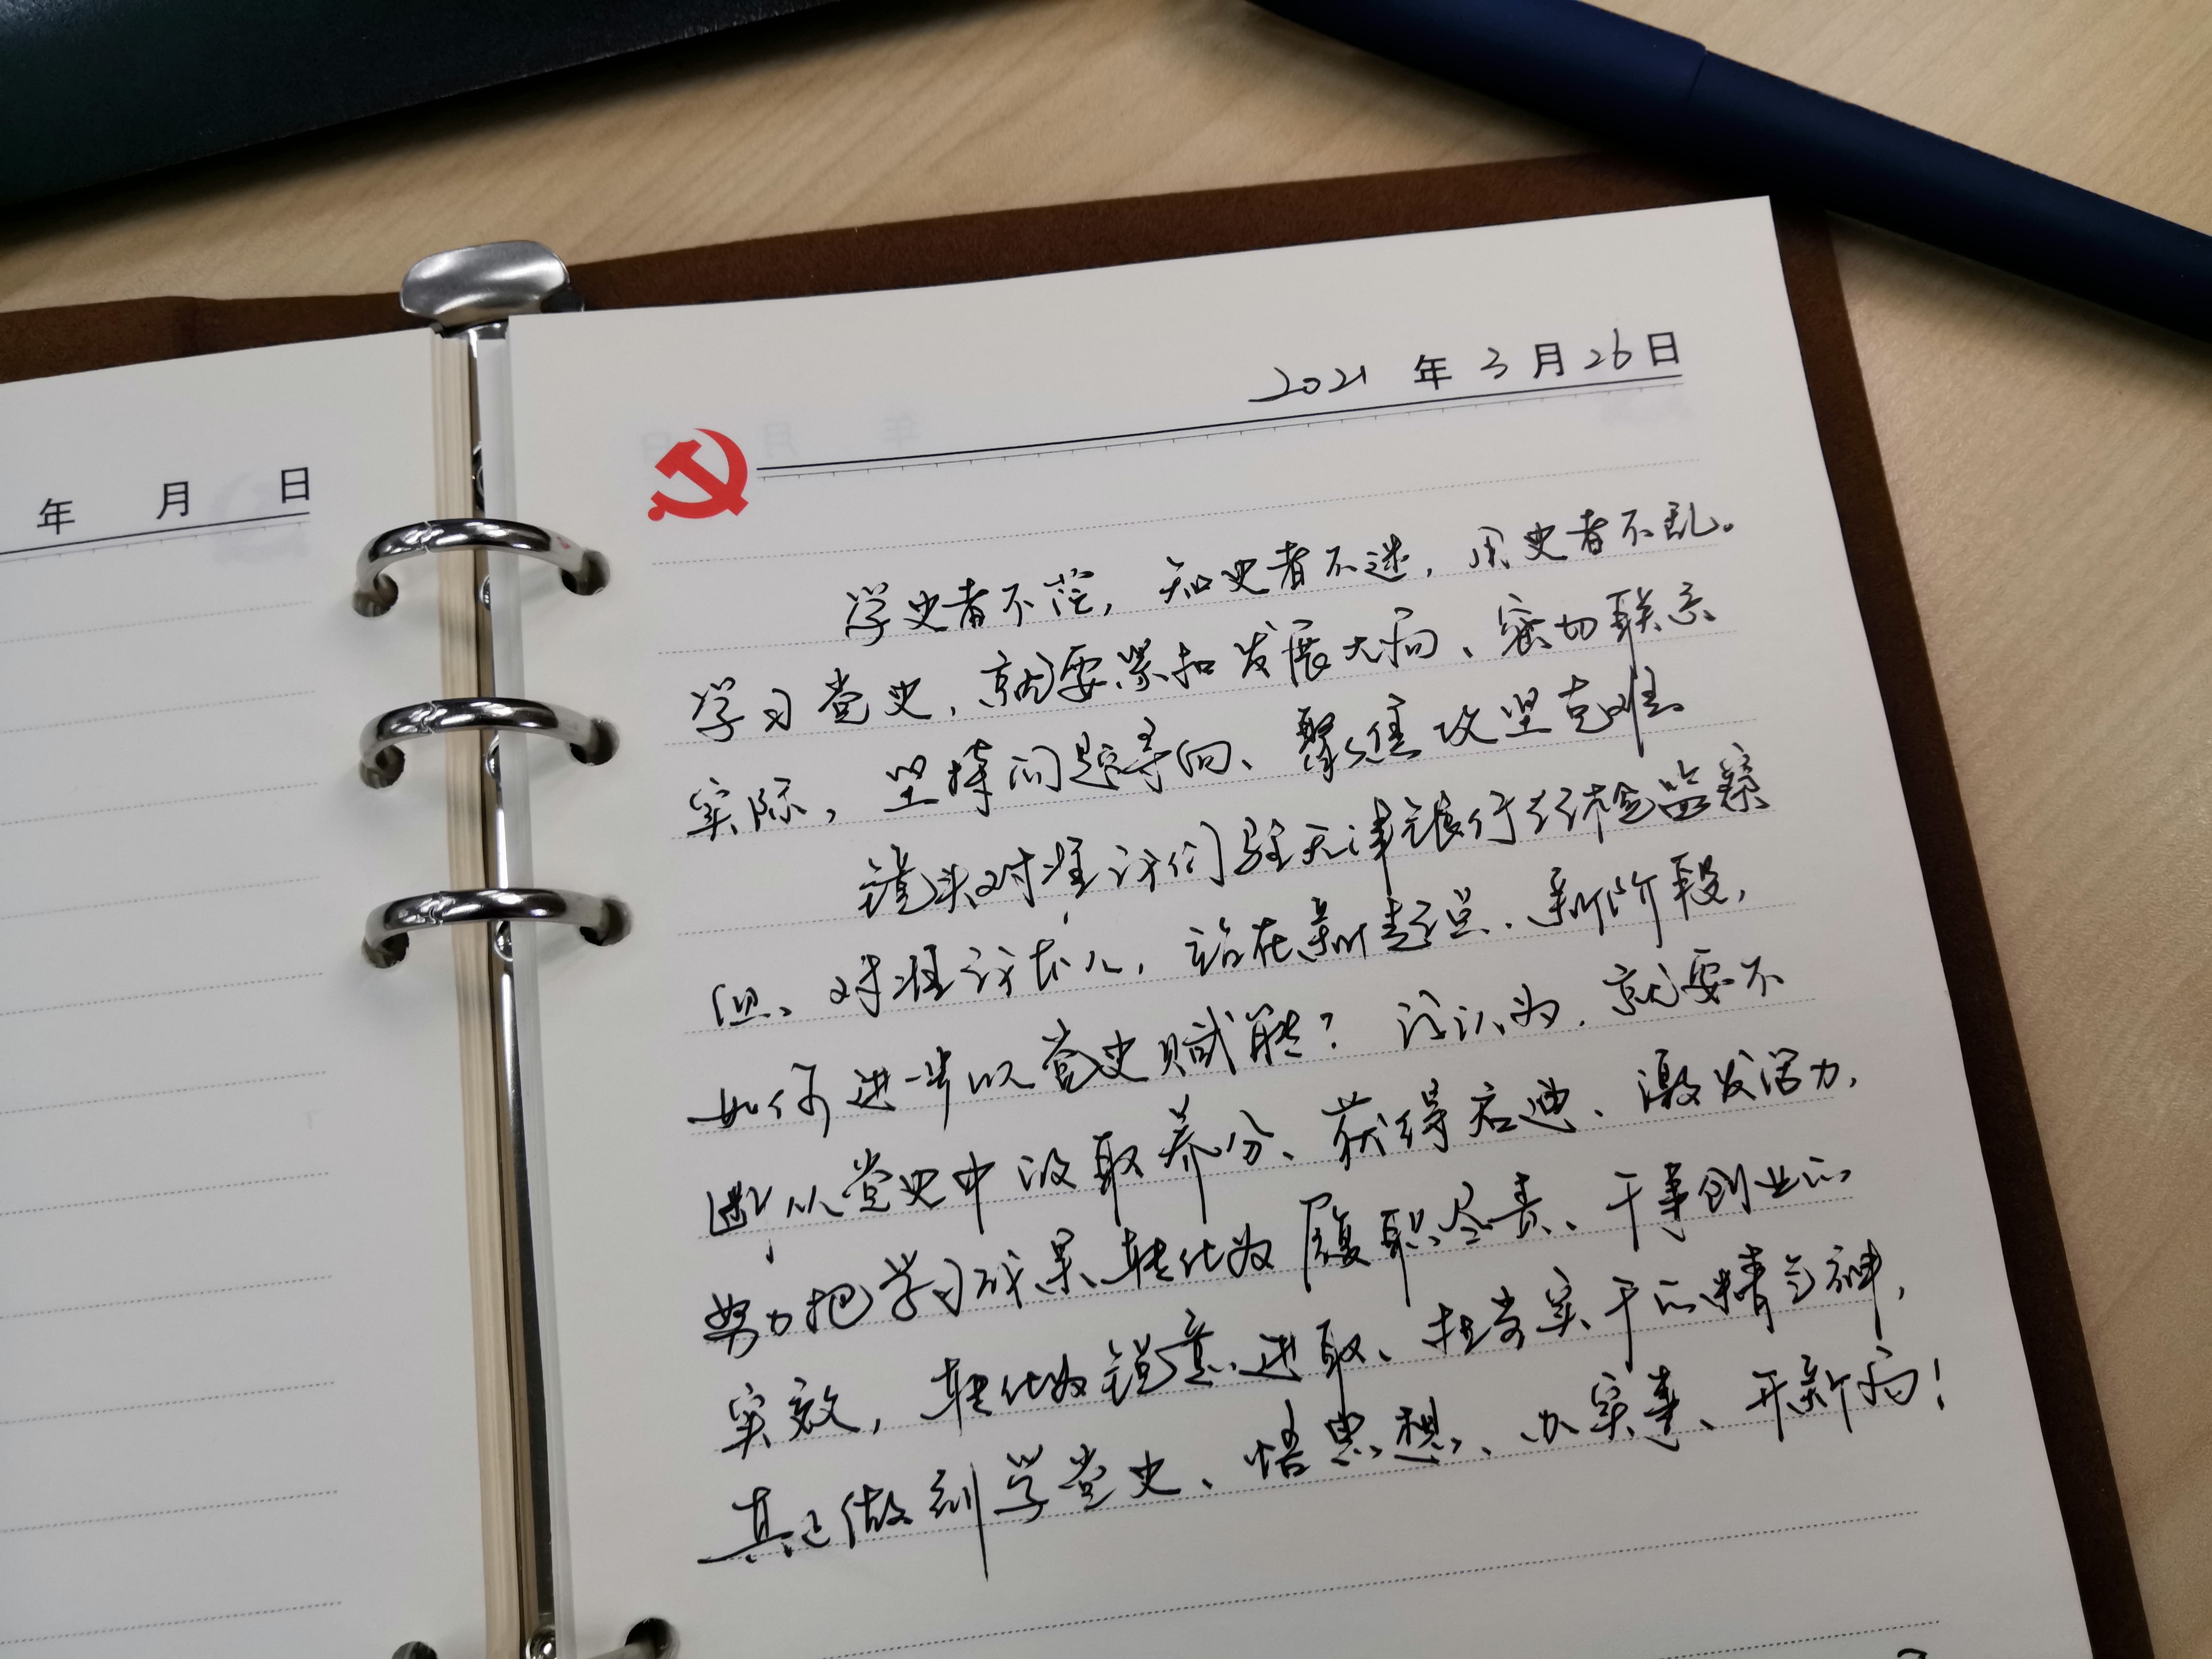 年 月 日
2021 年 3 月 26 日
学史者不茫，知史者不迷，用史者不乱。
学习党史，就要紧扣发展大局、密切联系
实际，坚持问题导向、聚焦攻坚克难。
镜头对准我们驻天津银行纪检监察
组、对准我本人，站在新起点、新阶段，
如何进一步以党史赋能？我认为，就要不
断从党史中汲取养分、获得启迪、激发活力，
努力把学习成果转化为履职尽责、干事创业的
实效，转化为锐意进取、担当实干的精气神，
真正做到学党史、悟思想、办实事、开新局！